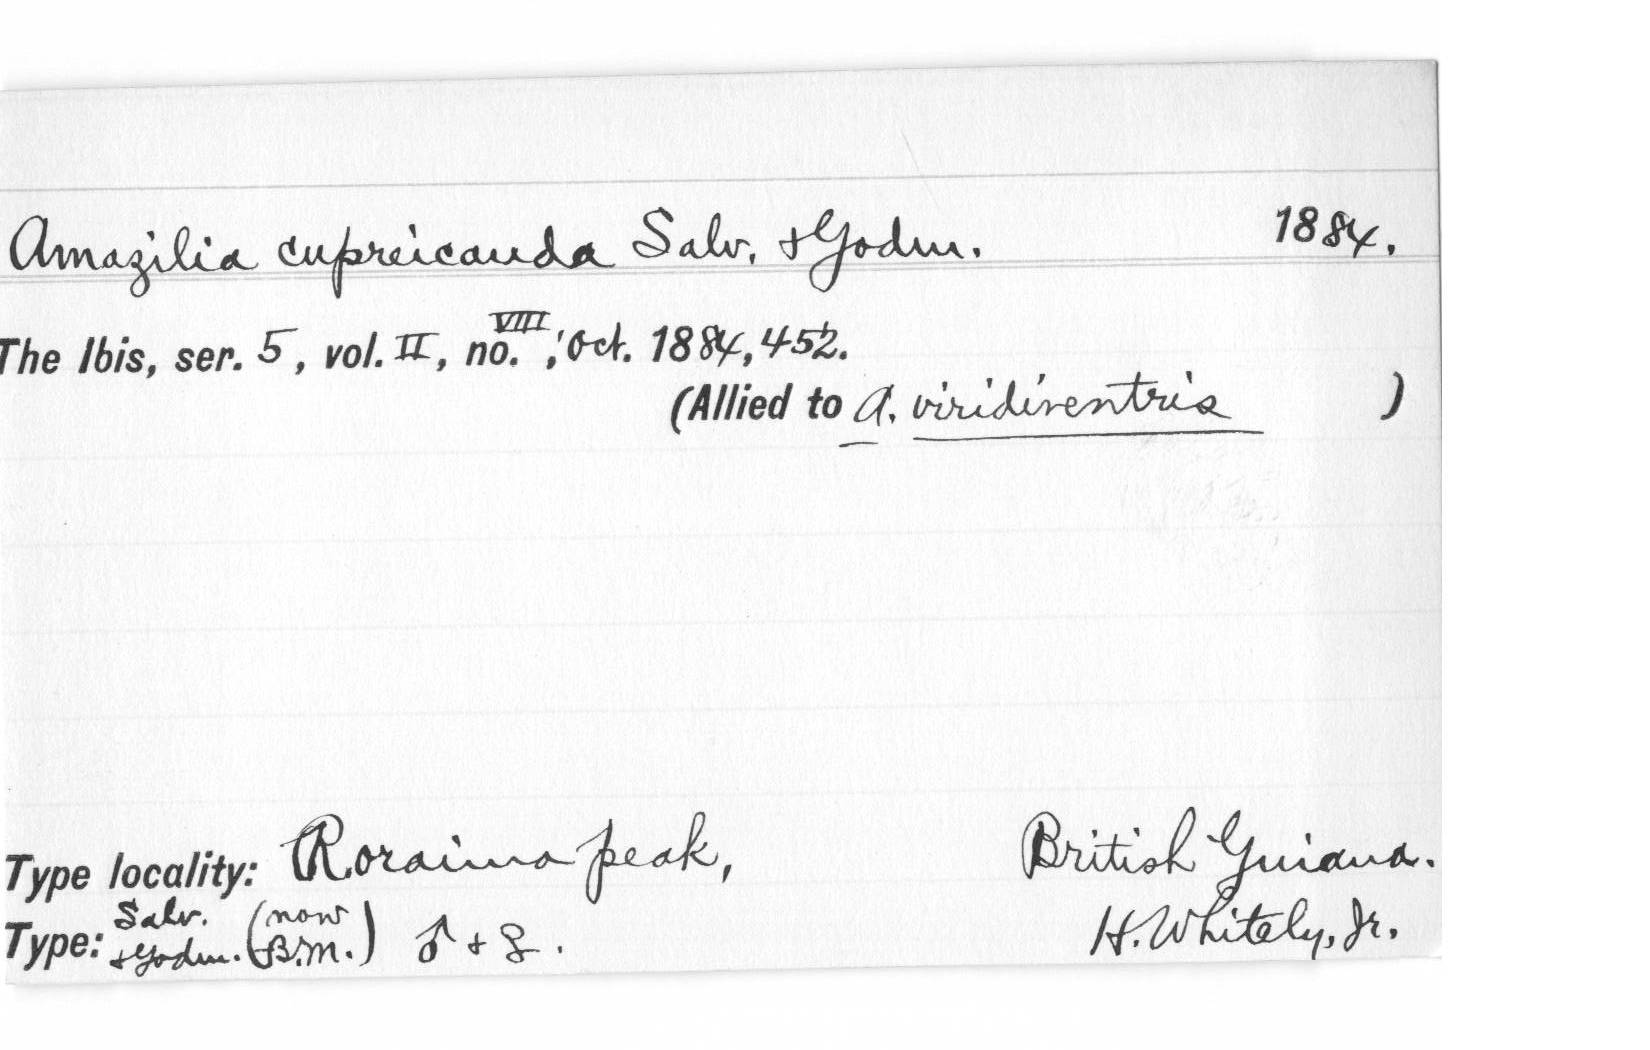 Amazilia cupreicauda Salv. & Godm. 1884.
The Ibis, ser. 5, vol. II, no. VIII, Oct. 1884, 452.
(Allied to A. viridiventris )
Type locality: Roraima peak, British Guiana.
Type: Salv. & Godm. (now B.M.) ♂ & ♀. H. Whitely, Jr.